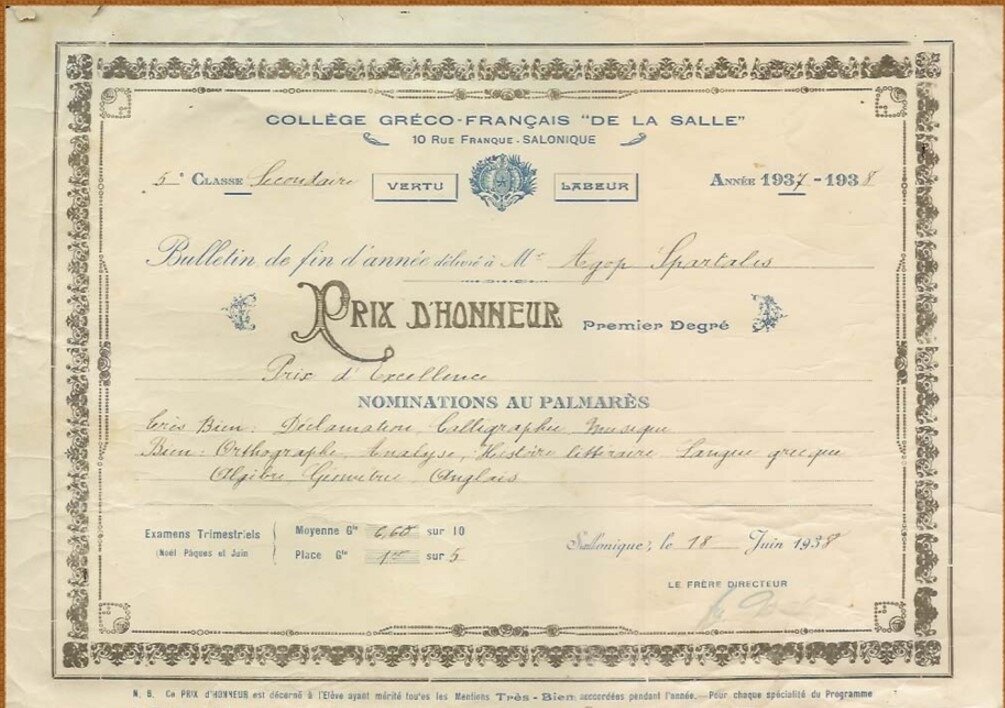 COLLÈGE GRÉCO-FRANÇAIS "DE LA SALLE"
10 RUE FRANQUE - SALONIQUE
5e CLASSE Secondaire VERTU LABEUR ANNÉE 1937 - 1938
Bulletin de fin d'année délivré à Mr Agop Spartalis
PRIX D'HONNEUR Premier Degré
Prix d'Excellence
NOMINATIONS AU PALMARÈS
Très Bien: Déclamation, Calligraphie, Musique
Bien: Orthographe, Analyse, Histoire littéraire, Langue grecque
Algèbre, Géométrie, Anglais
Examens Trimestriels Moyenne Gle 6,68 sur 10
(Noël Pâques et Juin Place Gle 1er sur 5
Salonique, le 18 Juin 1938
LE FRÈRE DIRECTEUR
N. B. Ce PRIX d'HONNEUR est décerné à l'Elève ayant mérité toutes les Mentions Très - Bien accordées pendant l'année. - Pour chaque spécialité du Programme